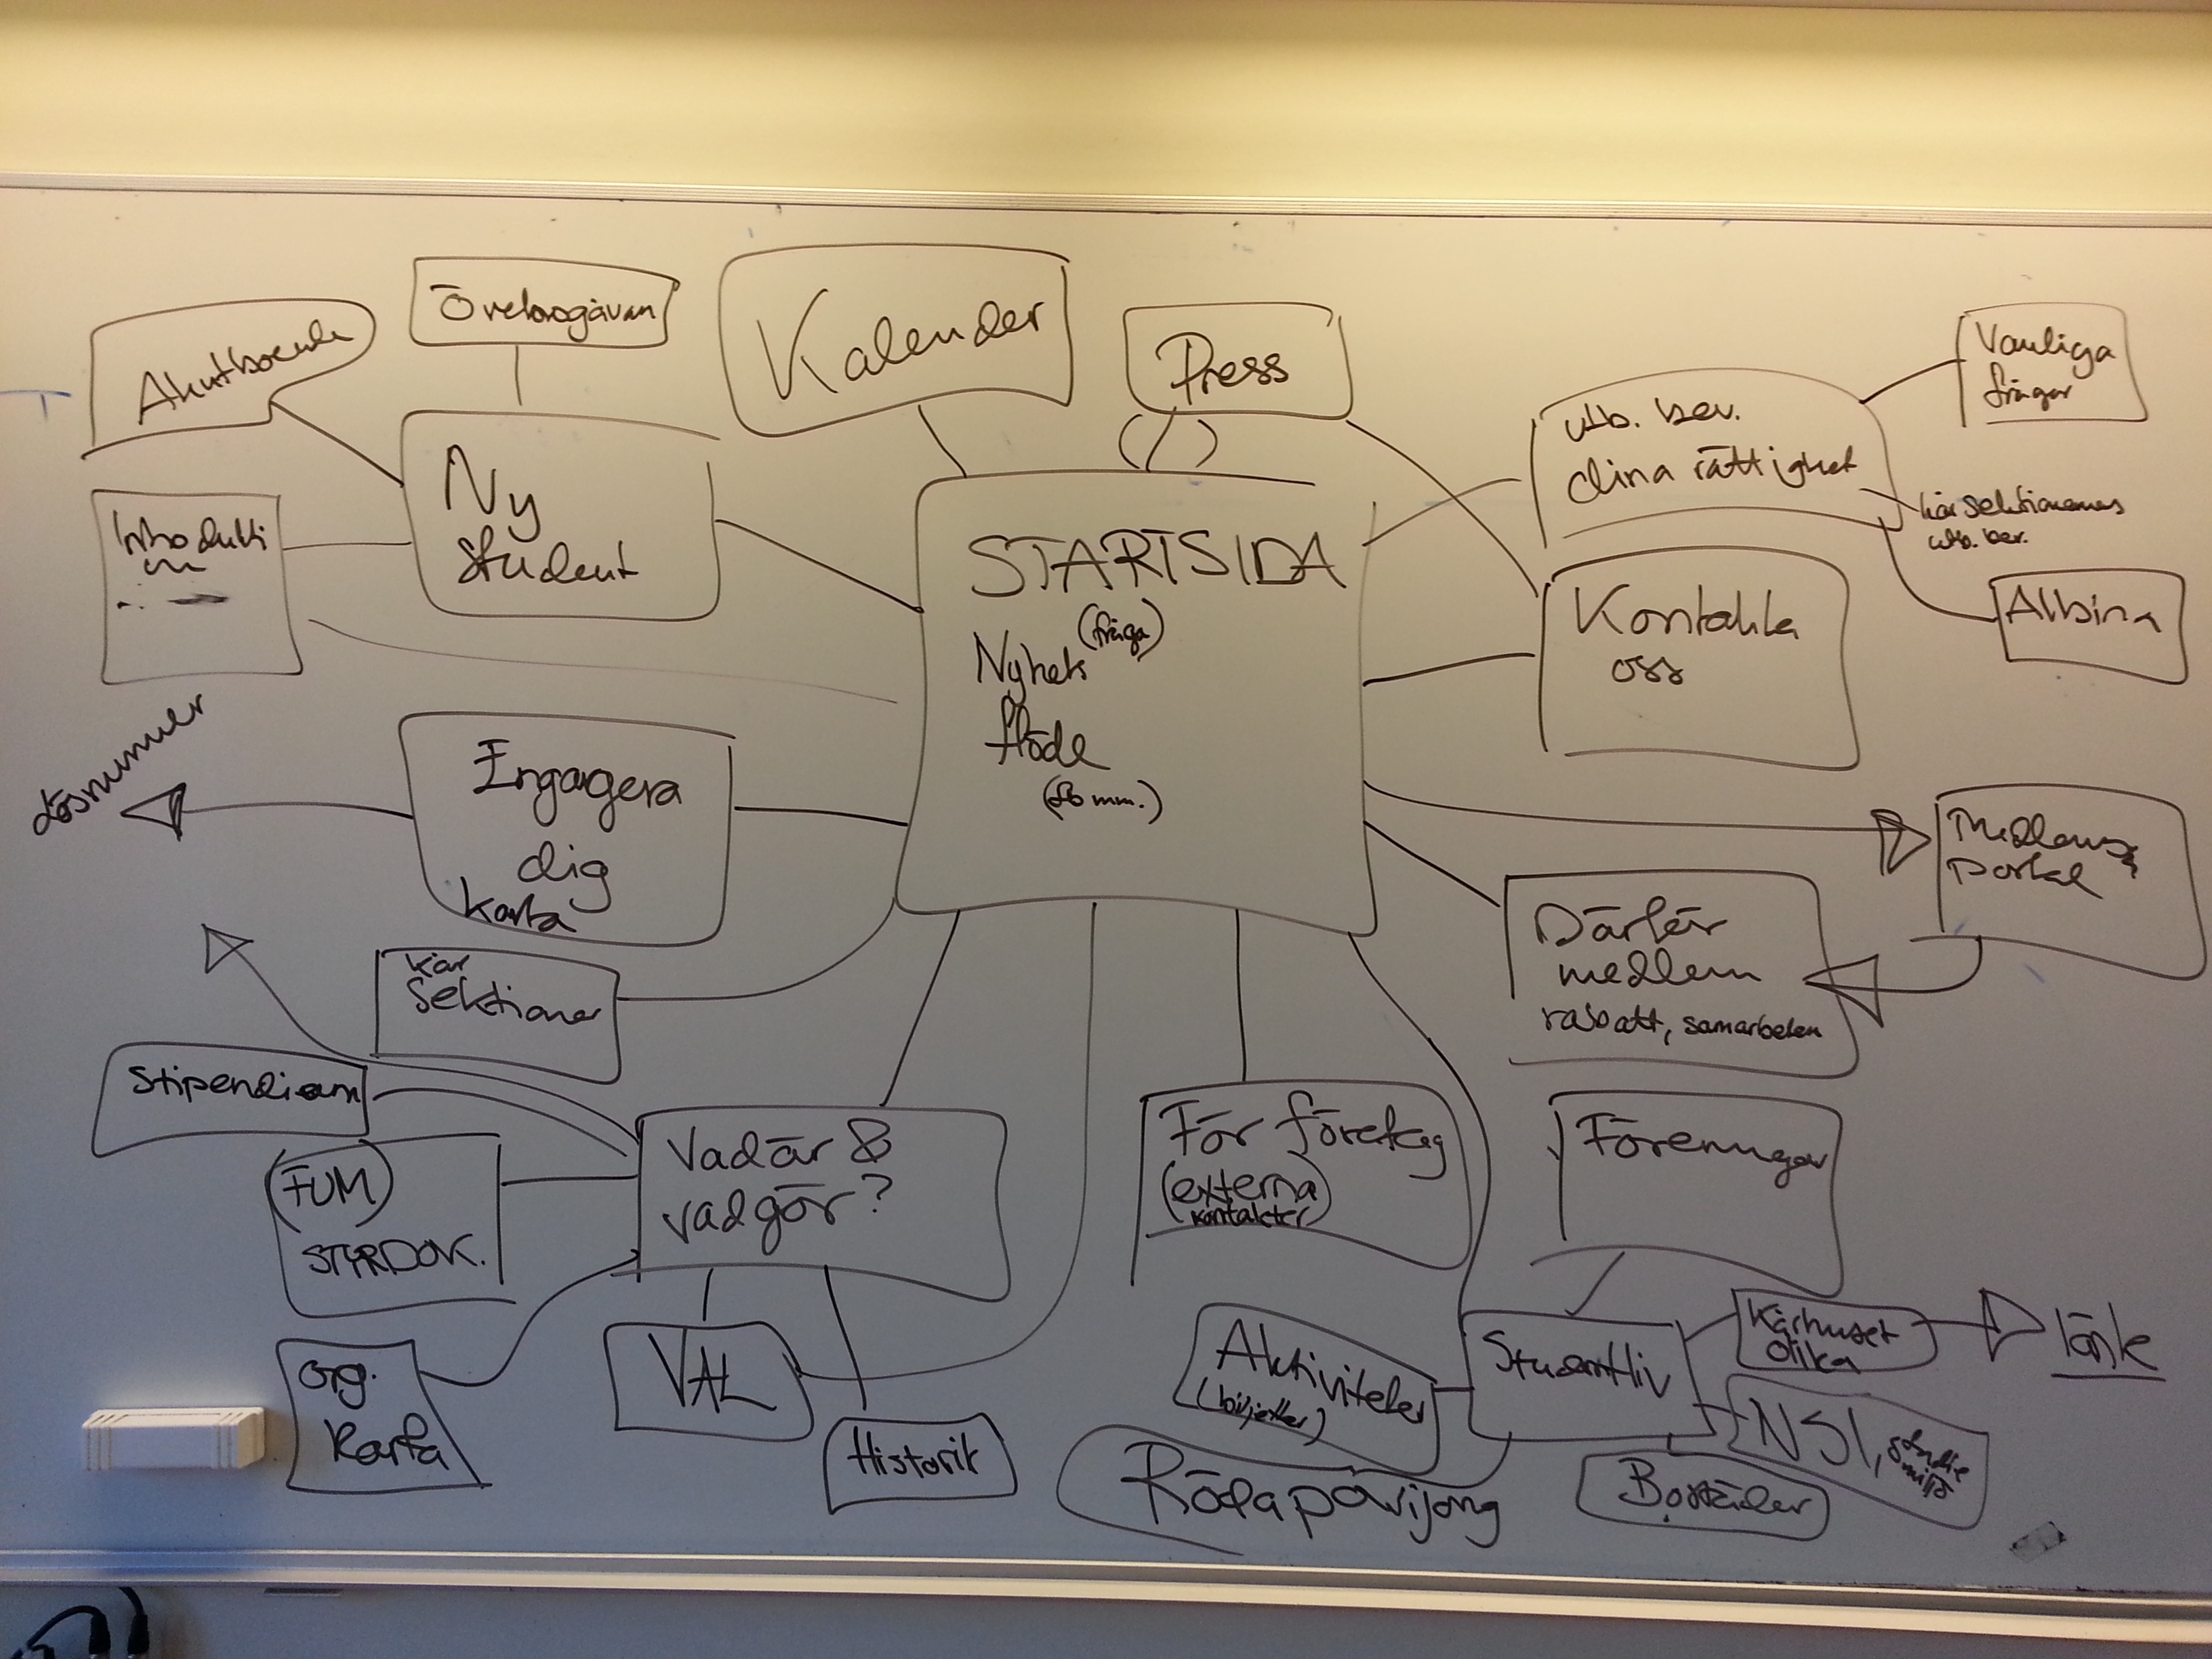 Akutboende
Örebrogåvan
Kalender
Press
Vanliga
frågor
utb. bev.
dina rättighet
kårsektionernas
utb. bev.
Albina
Introdukti
on
Ny
student
STARTSIDA
(fråga)
Nyhets
flöde
(fb mm.)
Kontakta
oss
lösnummer
Engagera
dig
karta
Medlems
portal
Därför
medlem
rabatt, samarbeten
kår
sektioner
Stipendium
(FUM)
STYRDOK.
Vad är &
vad gör?
För företag
(externa
kontakter)
Föreningar
org.
karta
VAL
Historik
Aktiviteter
Studentliv
Kårhuset
olika
länk
NSI, studie
miljö
Röda paviljong
Bostäder